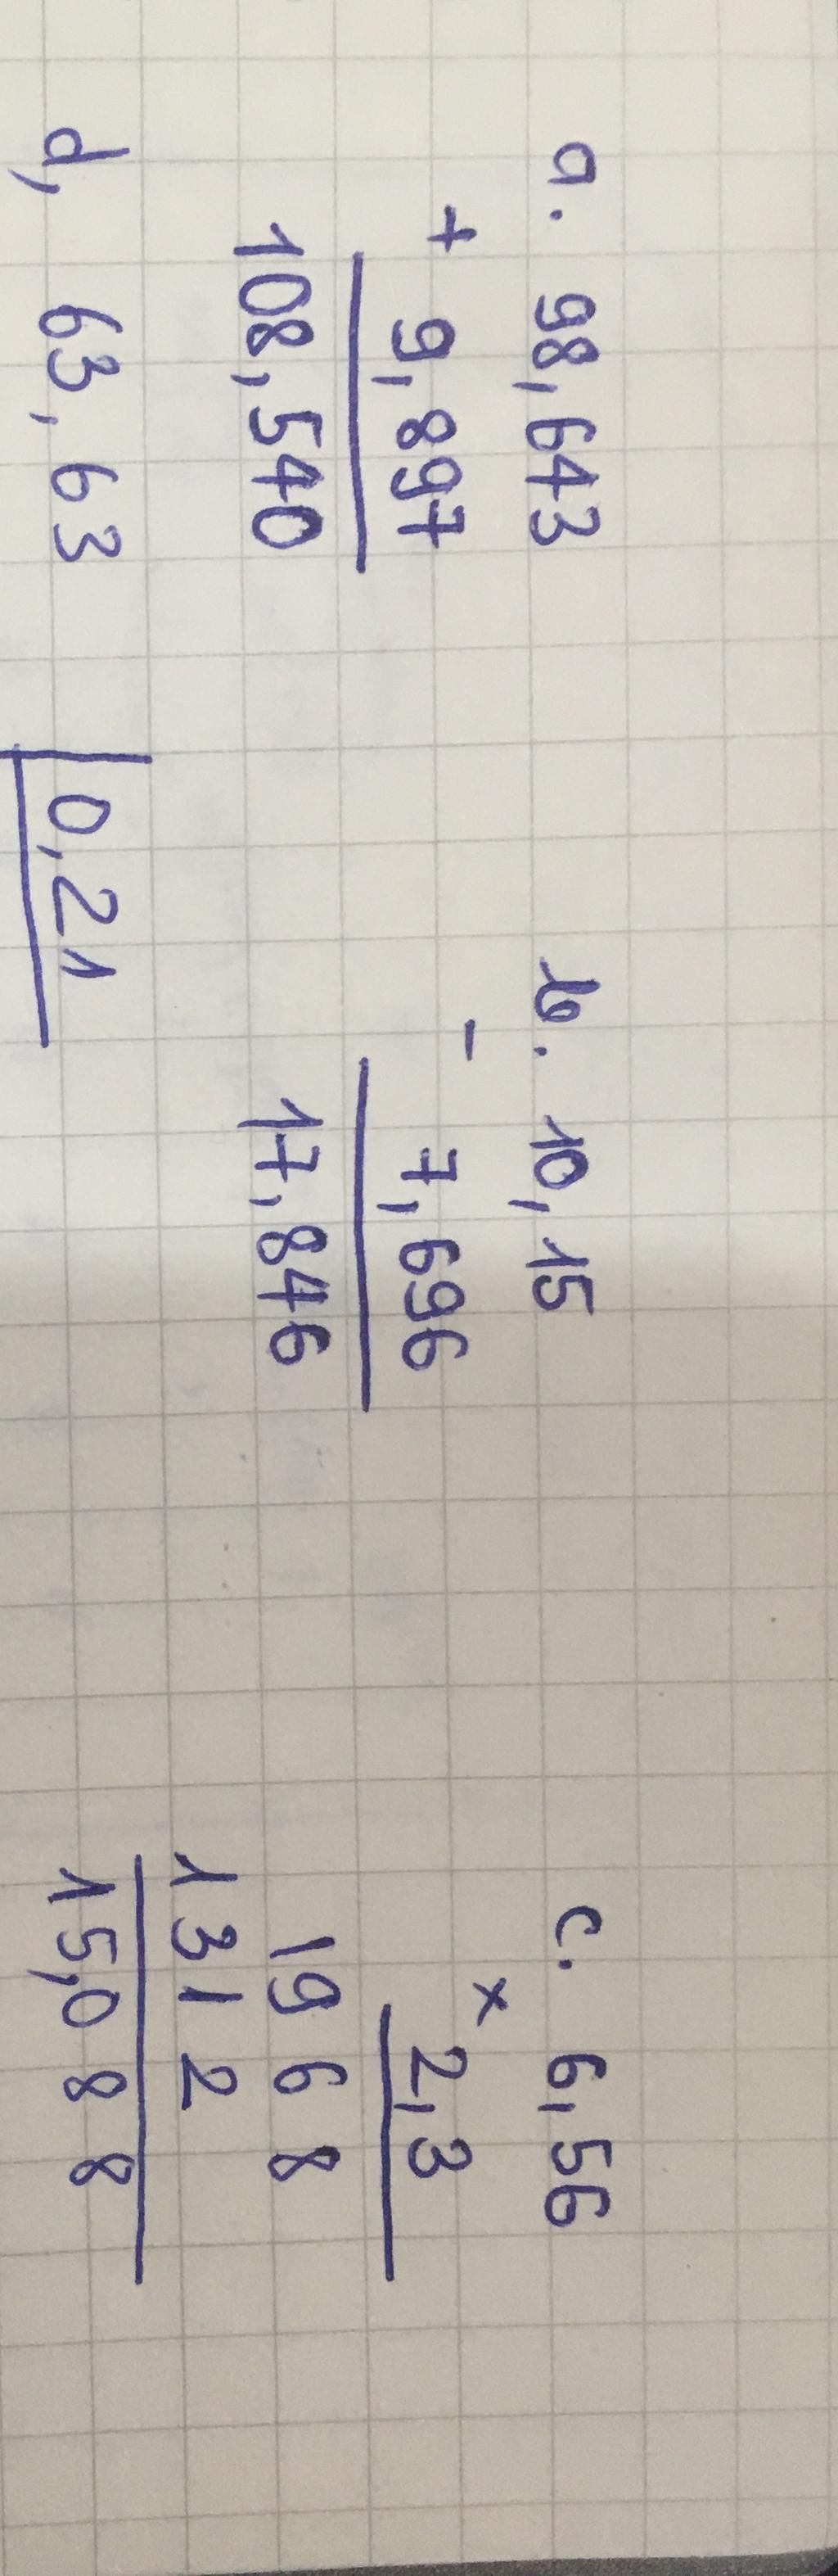 a. 98,643
+ 9,897
108,540
b. 10,15
- 7,696
17,846
c. 6,56
x 2,3
19 6 8
131 2
15,0 8 8
d, 63,63 0,21